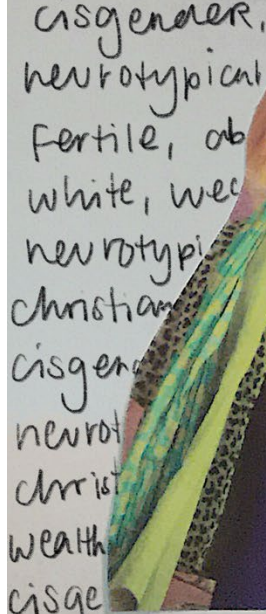 cisgender,
neurotypical
fertile, ab
white, wea
neurotypi
christian
cisgen
neurot
christ
wealth
cisge